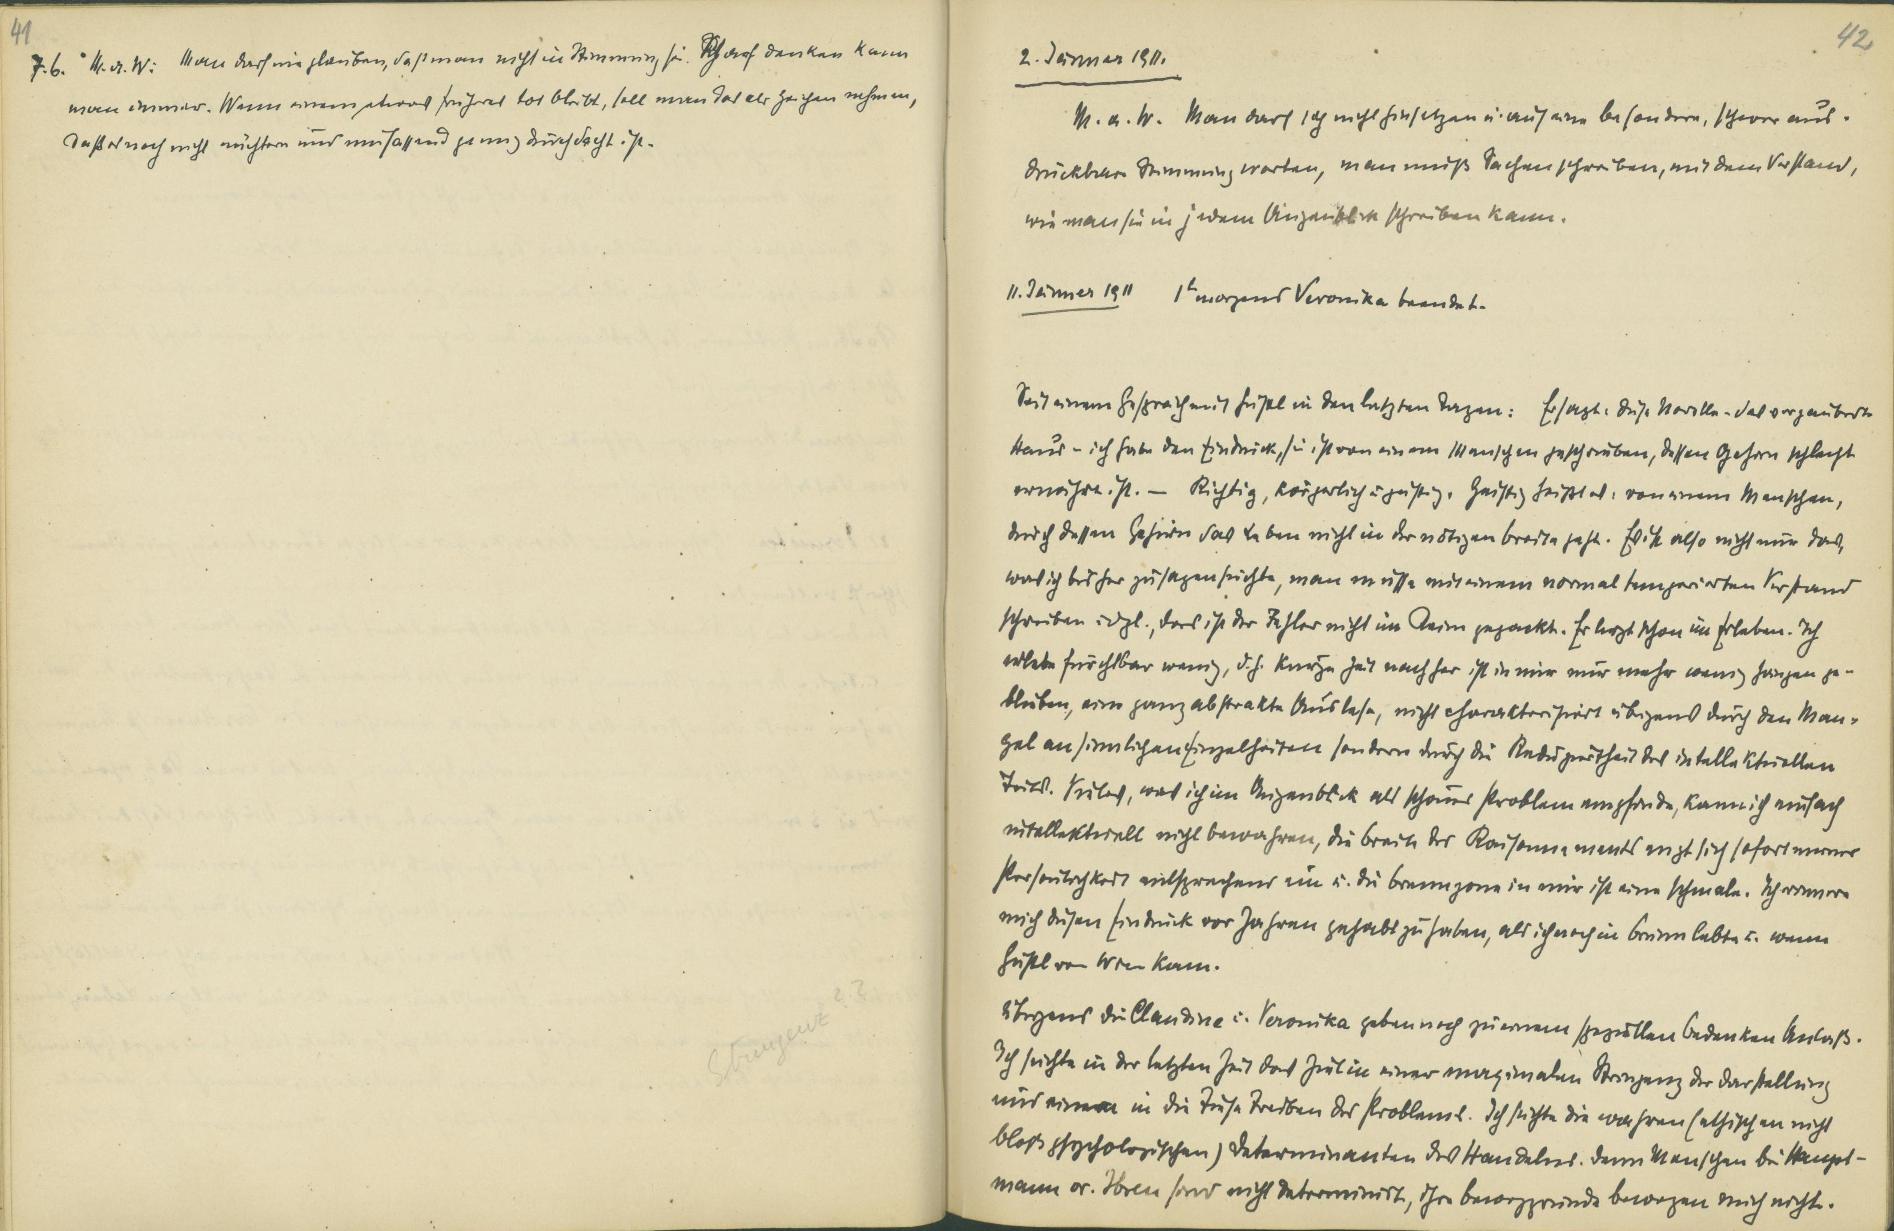 41
7.6. M.a.W: Man darf nie glauben, daß man nicht in Stimmung sei. Scharf denken kann
man immer. Wenn einem etwas früheres tot bleibt, soll man das als Zeichen nehmen,
daß es noch nicht nüchtern und umfassend genug durchdacht ist.
Stringenz ??
42
2. Jänner 1911.
M. a. W. Man darf sich nicht hinsetzen u. auf eine besondere, schwer aus-
drückbare Stimmung warten, man muß Sachen schreiben, mit dem Verstand,
wie man sie in jedem Augenblick schreiben kann.
11. Jänner 1911 1h morgens Veronika beendet.
Seit einem Gespräch mit Gustl in den letzten Tagen: Er sagt: diese Novelle - das verzauberte
Haus - ich habe den Eindruck, sie ist von einem Menschen geschrieben, dessen Gehirn schlecht
ernährt ist. — Richtig, körperlich u geistig. Geistig heißt es: von einem Menschen,
durch dessen Gehirn das Leben nicht in der nötigen Breite geht. Es ist also nicht nur das,
was ich bisher zu sagen suchte, man müsse mit einem normal temperierten Verstand
schreiben udgl., das ist der Fehler nicht im Keim gepackt. Er liegt schon im Erleben. Ich
erlebe furchtbar wenig, d.h. kurze Zeit nachher ist in mir nur mehr wenig hängen ge-
blieben, eine ganz abstrakte Auslese, nicht charakterisiert übrigens durch den Man-
gel an sinnlichen Einzelheiten sondern durch die Reduziertheit des intellektuellen
Teils. Vieles, was ich im Augenblick als schönes Problem empfinde, kann ich einfach
intellektuell nicht bewahren, die Breite des Raisonnements engt sich sofort meiner
Persönlichkeit entsprechend ein u. die Brennzone in mir ist eine schmale. Ich erinnere
mich diesen Eindruck vor Jahren gehabt zu haben, als ich noch in Brünn lebte u. wenn
Gustl von Wien kam.
Übrigens die Claudine u. Veronika geben noch zu einem speziellen Bedenken Anlaß.
Ich suchte in der letzten Zeit das Ziel in einer maximalen Stringenz der Darstellung
und einem in die Tiefe Treiben des Problems. Ich suchte die wahren (ethischen nicht
bloß psychologischen) Determinanten des Handelns. Denn Menschen bei Haupt-
mann or. Ibsen sind nicht determiniert, ihre Beweggründe bewegen mich nicht.